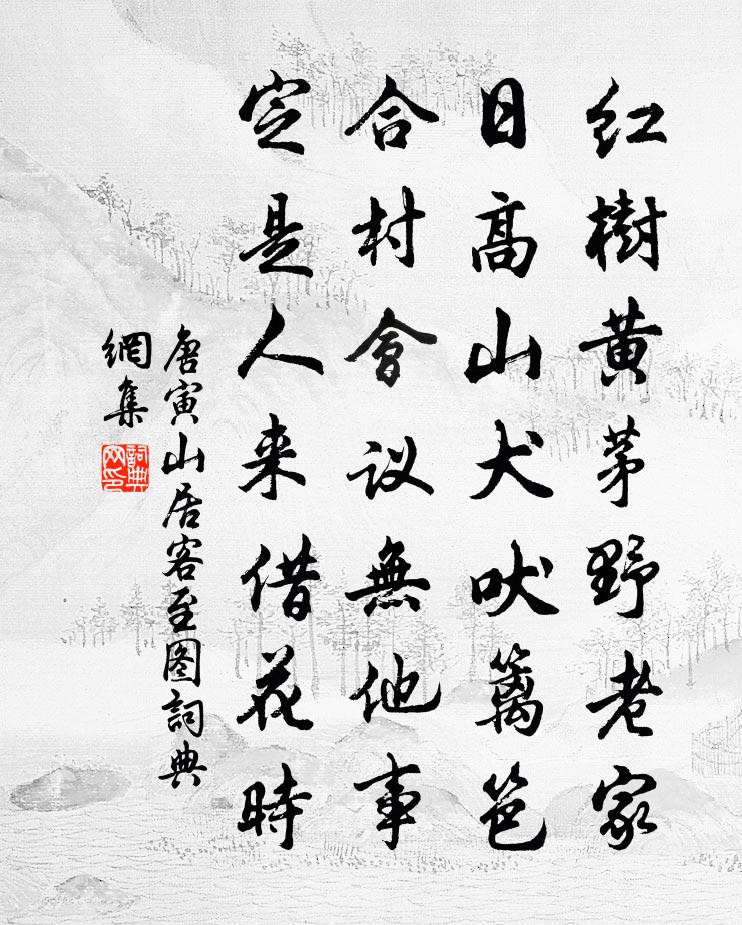 红樹黄茅野老家
日高山犬吠籬笆
合村會议無他事
定是人来借花時
唐寅山居客至图詞典
網集
詞典
网印